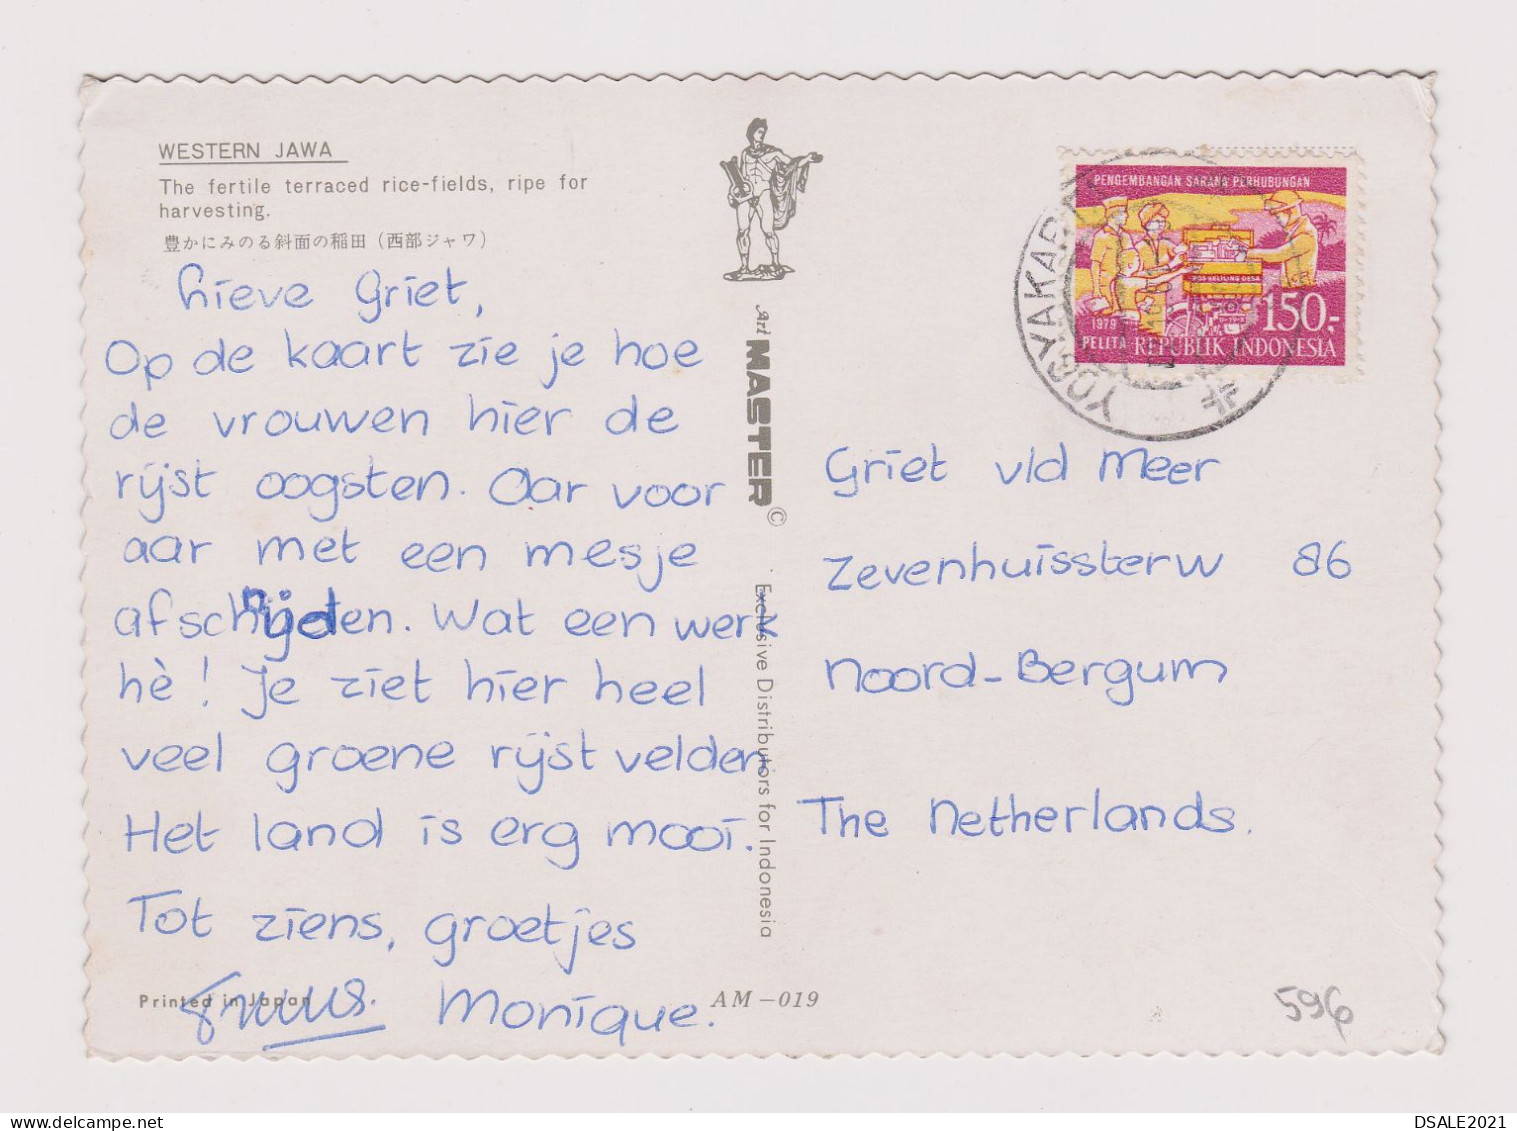 WESTERN JAWA
The fertile terraced rice-fields, ripe for
harvesting.
豊かにみのる斜面の稲田 (西部ジャワ)
Lieve Griet,
Op de kaart zie je hoe
de vrouwen hier de
rijst oogsten. Aar voor
aar met een mesje
afschnijden. Wat een werk
hè! Je ziet hier heel
veel groene rijstvelden
Het land is erg mooi.
Tot ziens, groetjes
Monique.
Printed in Japan
AM-019
Art MASTER ©
Exclusive Distributors for Indonesia
PENGEMBANGAN SARANA PERHUBUNGAN
POS KELILING DESA
150,-
1979
PELITA REPUBLIK INDONESIA
Griet v/d Meer
Zevenhuisterw 86
Noord-Bergum
The Netherlands.
596
DSALE2021